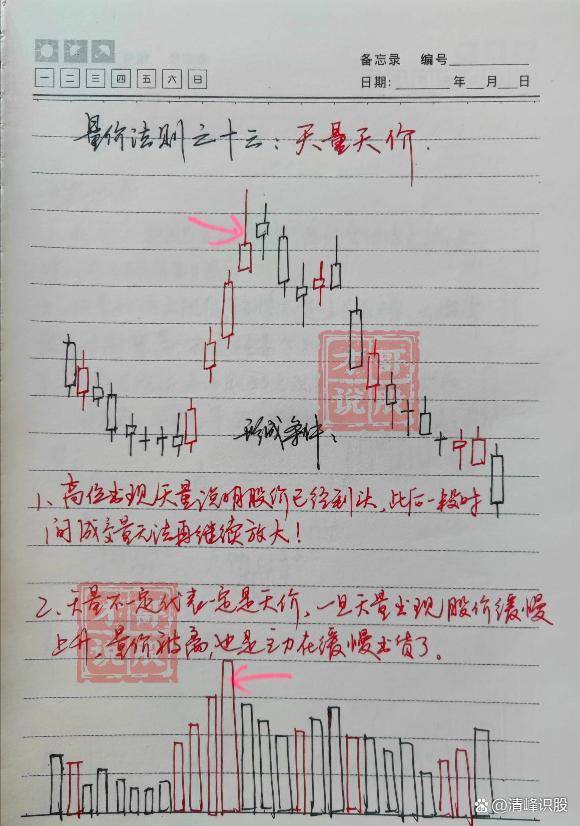 备忘录 编号
一 二 三 四 五 六 日
日期: 年 月 日
量价法则之十三：天量天价.
形成条件：
1、高位出现天量说明股价已经到头，此后一段时
间成交量无法再继续放大！
2、天量不一定代表一定是天价，一旦天量出现股价缓慢
上升，量价背离，也是主力在缓慢出货了。
哥
说股
@清峰识股